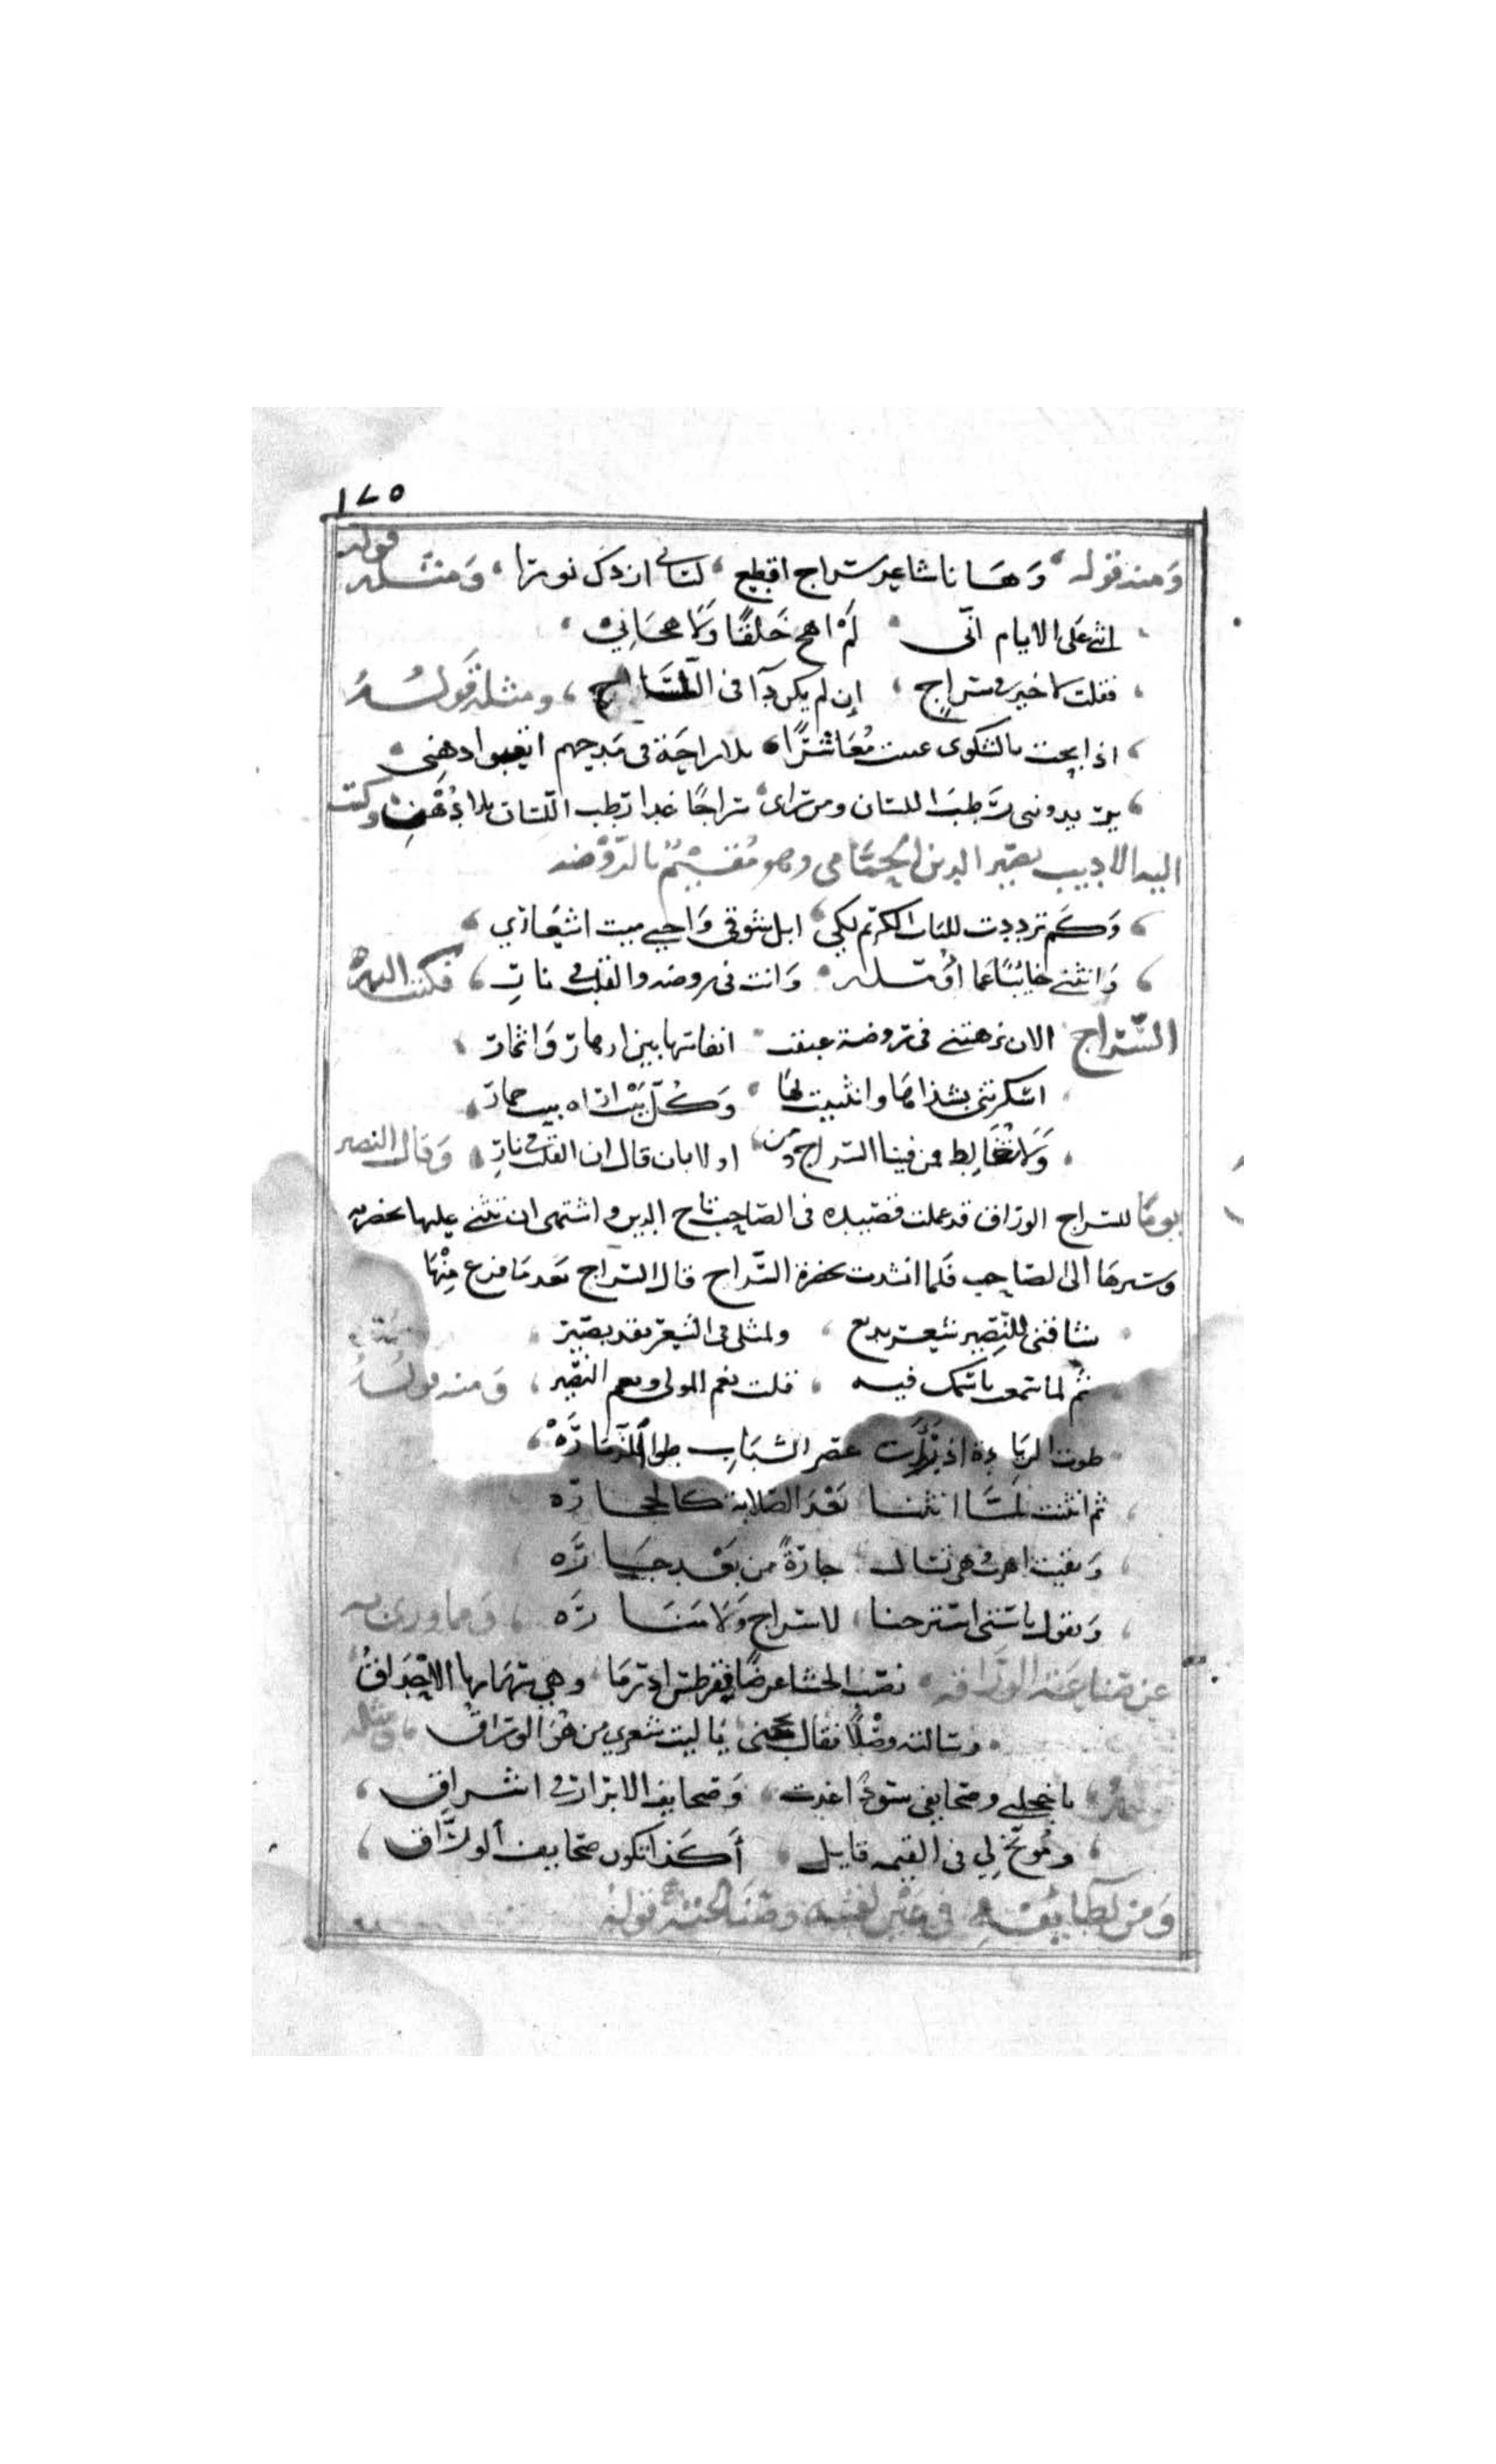 ١٢٥
ومنه قوله وها نا شاعر سراج اقطع لساني ازدك نورا ومثله قوله
اثنى على الايام انى لم اهج خلقا ولا هجانى
فقلت لا خير فى سراج إن لم يكن دافى اللسان ومثله قوله
اذا بحت بالشكوى عتبت معاشرا بلا راحة فى مدحهم اتعبوا ذهنى
يريدونى رطب اللسان ومن راى سراجا غدا رطب اللسان بلا دهن وكتب
اليه الاديب نصير الدين الحمامى وهو مقيم بالروضه
وكم ترددت للباب الكريم لكى ابل شوقى واحيى ميت اشعارى
وانثنى خائبا عما أؤمله وانت فى روضه والقلب فى نار فكتب اليه
السراج الان نزهتنى فى روضة عبقت انفاسها بين ازهار واثمار
اسكرتنى بشذاها وانثنيت بها وكل بيت اراه بيت خمار
ولا تغالط فمن فينا السراج ومن اولا بان قال ان القلب فى نار وقال النصير
يوما للسراج الوراق قد عملت قصيده فى الصاحب تاج الدين واشتهى ان تثنى عليها بحضرته
وسيرها الى الصاحب فلما انشدت بحضرة السراج قال السراج بعد ما فرغ منها
شاقنى للنصير شعر بديع ولمثلى فى الشعر نقد بصير
ثم لما سمعت باسمك فيه قلت نعم المولى ونعم النصير ومنه قوله
طوت الزيادة اذ رأت عصر الشباب طوا الزيارة
ثم انثنت لما انثنا بعد الصلابة كالحجاره
وبقيت اهرب وهى تسال جارة من بعد جاره
وتقول يا ستى استرحنا لا سراج ولا مناره ومما ورى به
عن صناعته الوراقه نصب الحشا غرضا فقرطس اذ رما وهى سهامها الاحداق
وسالته وصلا فقال يا ليت شعري من هو الوراق ومثله
قوله يا خجلى وصحايفى سودا غدت وصحايف الابرار فى اشراق
وموبخ لي فى القيمه قايل أكذا تكون صحايف الوراق
ومن لطايفه فى قوله